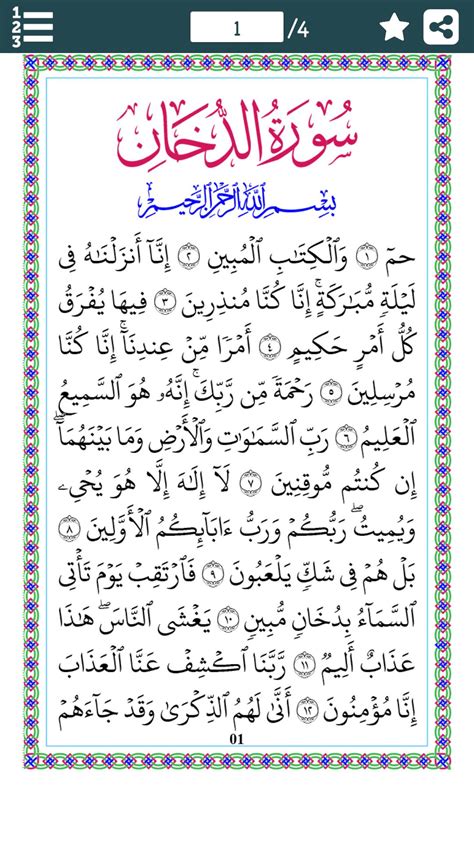 1
2
3
1
/4
سُورَةُ الدُّخَانِ
بِسْمِ اللَّهِ الرَّحْمَٰنِ الرَّحِيمِ
حمٓ ١ وَٱلْكِتَـٰبِ ٱلْمُبِينِ ٢ إِنَّآ أَنزَلْنَـٰهُ فِى
لَيْلَةٍ مُّبَـٰرَكَةٍ ۚ إِنَّا كُنَّا مُنذِرِينَ ٣ فِيهَا يُفْرَقُ
كُلُّ أَمْرٍ حَكِيمٍ ٤ أَمْرًا مِّنْ عِندِنَآ ۚ إِنَّا كُنَّا
مُرْسِلِينَ ٥ رَحْمَةً مِّن رَّبِّكَ ۚ إِنَّهُۥ هُوَ ٱلسَّمِيعُ
ٱلْعَلِيمُ ٦ رَبِّ ٱلسَّمَـٰوَٰتِ وَٱلْأَرْضِ وَمَا بَيْنَهُمَآ ۖ
إِن كُنتُم مُّوقِنِينَ ٧ لَآ إِلَـٰهَ إِلَّا هُوَ يُحْىِۦ
وَيُمِيتُ ۖ رَبُّكُمْ وَرَبُّ ءَابَآئِكُمُ ٱلْأَوَّلِينَ ٨
بَلْ هُمْ فِى شَكٍّ يَلْعَبُونَ ٩ فَٱرْتَقِبْ يَوْمَ تَأْتِى
ٱلسَّمَآءُ بِدُخَانٍ مُّبِينٍ ١٠ يَغْشَى ٱلنَّاسَ ۖ هَـٰذَا
عَذَابٌ أَلِيمٌ ١١ رَّبَّنَا ٱكْشِفْ عَنَّا ٱلْعَذَابَ
إِنَّا مُؤْمِنُونَ ١٢ أَنَّىٰ لَهُمُ ٱلذِّكْرَىٰ وَقَدْ جَآءَهُمْ
01